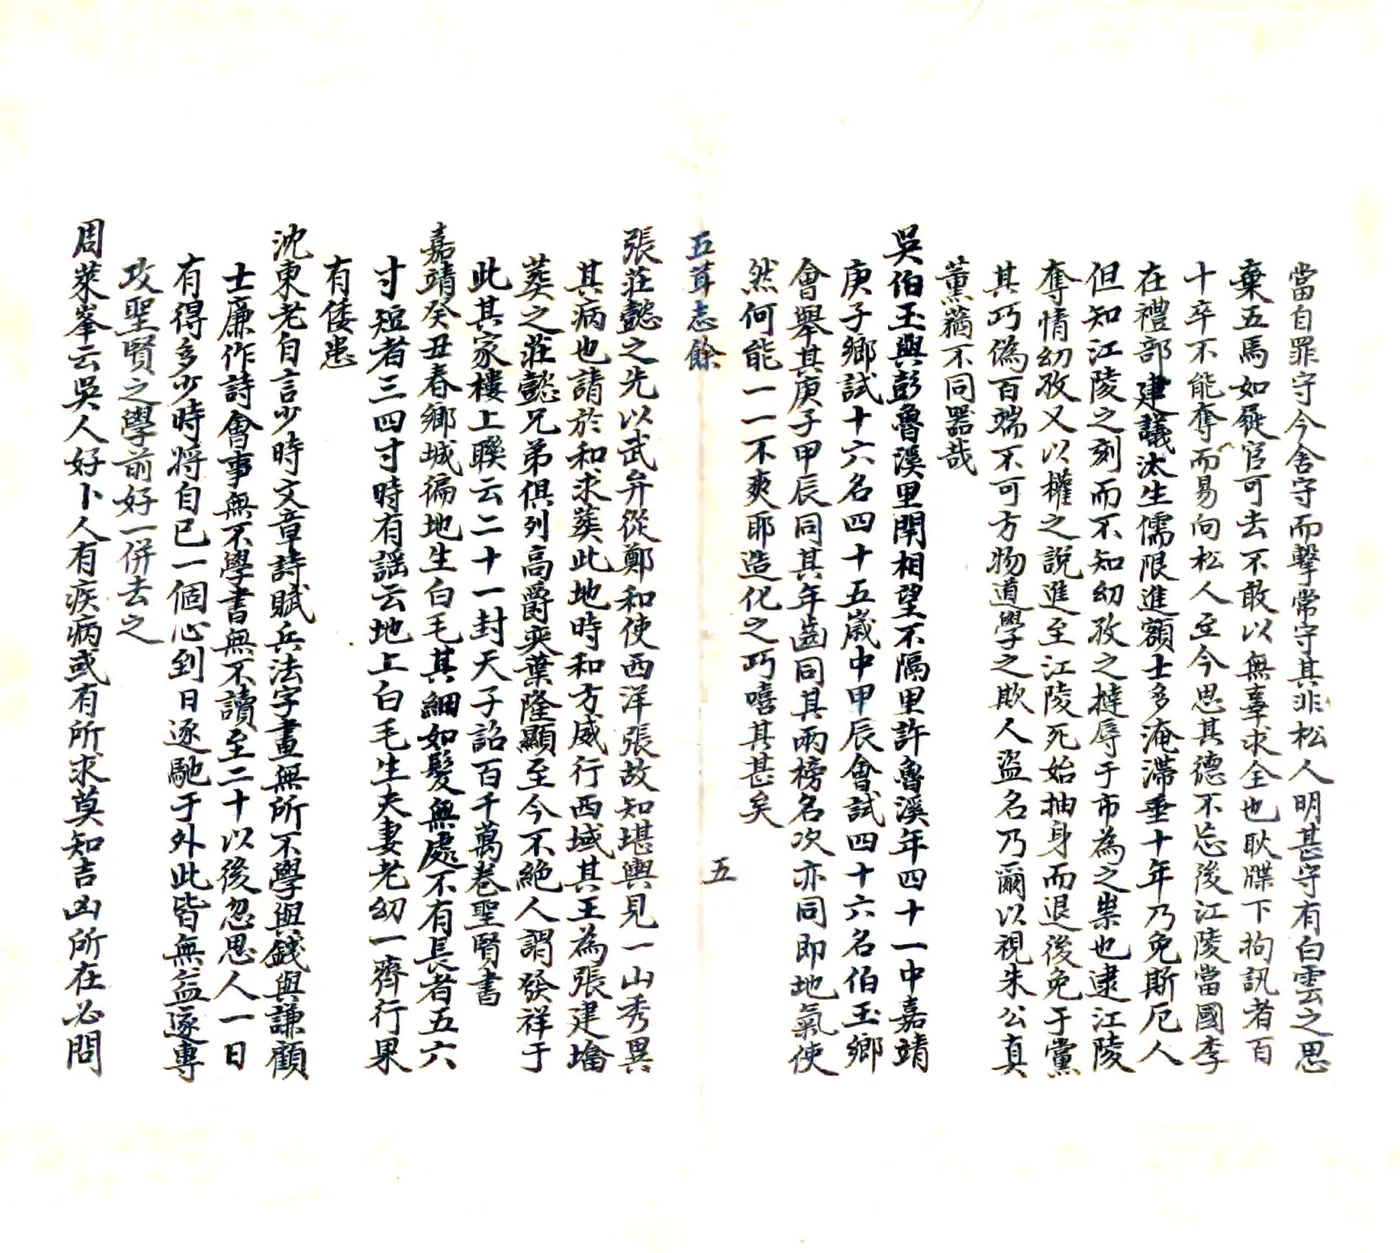 當自罪守今舍守而擊常守其非松人明甚守有白雲之思
棄五馬如屣官可去不敢以無辜求全也耿牒下拘訊者百
十卒不能奪而易向松人至今思其德不忘後江陵當國李
在禮部建議汰生儒限進額士多淹滯垂十年乃免斯厄人
但知江陵之刻而不知幼孜之撻辱于市為之祟也逮江陵
奪情幼孜又以權之說進至江陵死始抽身而退後免于黨
其巧偽百端不可方物道學之欺人盜名乃爾以視朱公真
薰蕕不同器哉
吳伯玉與彭魯溪里閈相望不隔里許魯溪年四十一中嘉靖
庚子鄉試十六名四十五歲中甲辰會試四十六名伯玉鄉
會舉其庚子甲辰同其年齒同其兩榜名次亦同即地氣使
然何能一一不爽耶造化之巧嘻其甚矣
五茸志餘 五
張莊懿之先以武弁從鄭和使西洋張故知堪輿見一山秀異
其病也請於和求葬此地時和方威行西域其王為張建墖
葬之莊懿兄弟俱列高爵奕葉隆顯至今不絕人謂發祥于
此其家樓上聯云二十一封天子詔百千萬卷聖賢書
嘉靖癸丑春鄉城徧地生白毛其細如髮無處不有長者五六
寸短者三四寸時有謡云地上白毛生夫妻老幼一齊行果
有倭患
沈東老自言少時文章詩賦兵法字畫無所不學與錢與謙顧
士廉作詩會事無不學書無不讀至二十以後忽思人一日
有得多少時將自已一個心到日逐馳于外此皆無益遂專
攻聖賢之學前好一併去之
周萊峯云吳人好卜人有疾病或有所求莫知吉凶所在必問